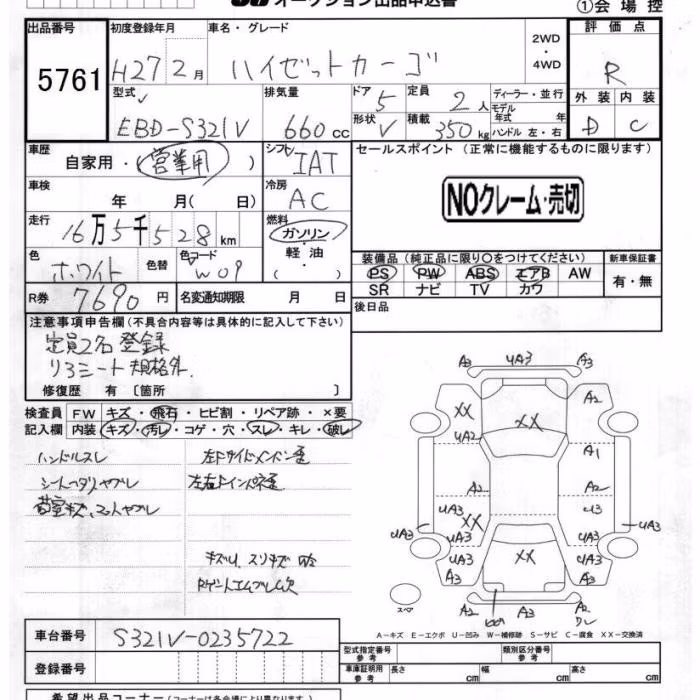 オークション出品申込書
①会場控
出品番号 初度登録年月 車名・グレード 2WD ・ 4WD 評価点
5761 H27 2月 ハイゼットカーゴ R
型式 排気量 ドア 定員 ディーラー・並行 外装 内装
EBD-S321V 660cc 5 2人 モデル年式 年 D C
形状 V 積載 350kg ハンドル 左・右
車歴 自家用・営業用( ) シフト IAT セールスポイント(正常に機能するものに限ります)
車検 年 月( 日) 冷房 AC NOクレーム・売切
走行 16万5千528km 燃料 ガソリン・軽油・( )
色 ホワイト 色替 色コード W09
装備品(純正品に限り○をつけてください) 新車保証書
PS PW ABS エアB AW 有・無
SR ナビ TV カワ
R券 7690円 名変通知期限 月 日 後日品
注意事項申告欄(不具合内容等は具体的に記入して下さい)
定員2名登録
リヤシート規格外.
修復歴 有〔箇所 〕
検査員記入欄 FW キズ・飛石・ヒビ割・リペア跡・×要
内装 キズ・汚レ・コゲ・穴・スレ・キレ・破レ
ハンドルスレ
A3 UA3 A3
XX XX A2
UA2 A1
A2 A2
UA3 XX UA3 U3 UA3
UA3 XX UA3
A3 A3
A2 A3 A2
スペア
A－キズ E－エクボ U－凹み W－補修跡 S－サビ C－腐食 XX－交換済
車台番号 S321V-0235722
登録番号
型式指定番号 参考 類別区分番号 参考
車庫証明用 参考 長さ cm 幅 cm 高さ cm
希望出品コーナー(コーナーは各会場により異なります)